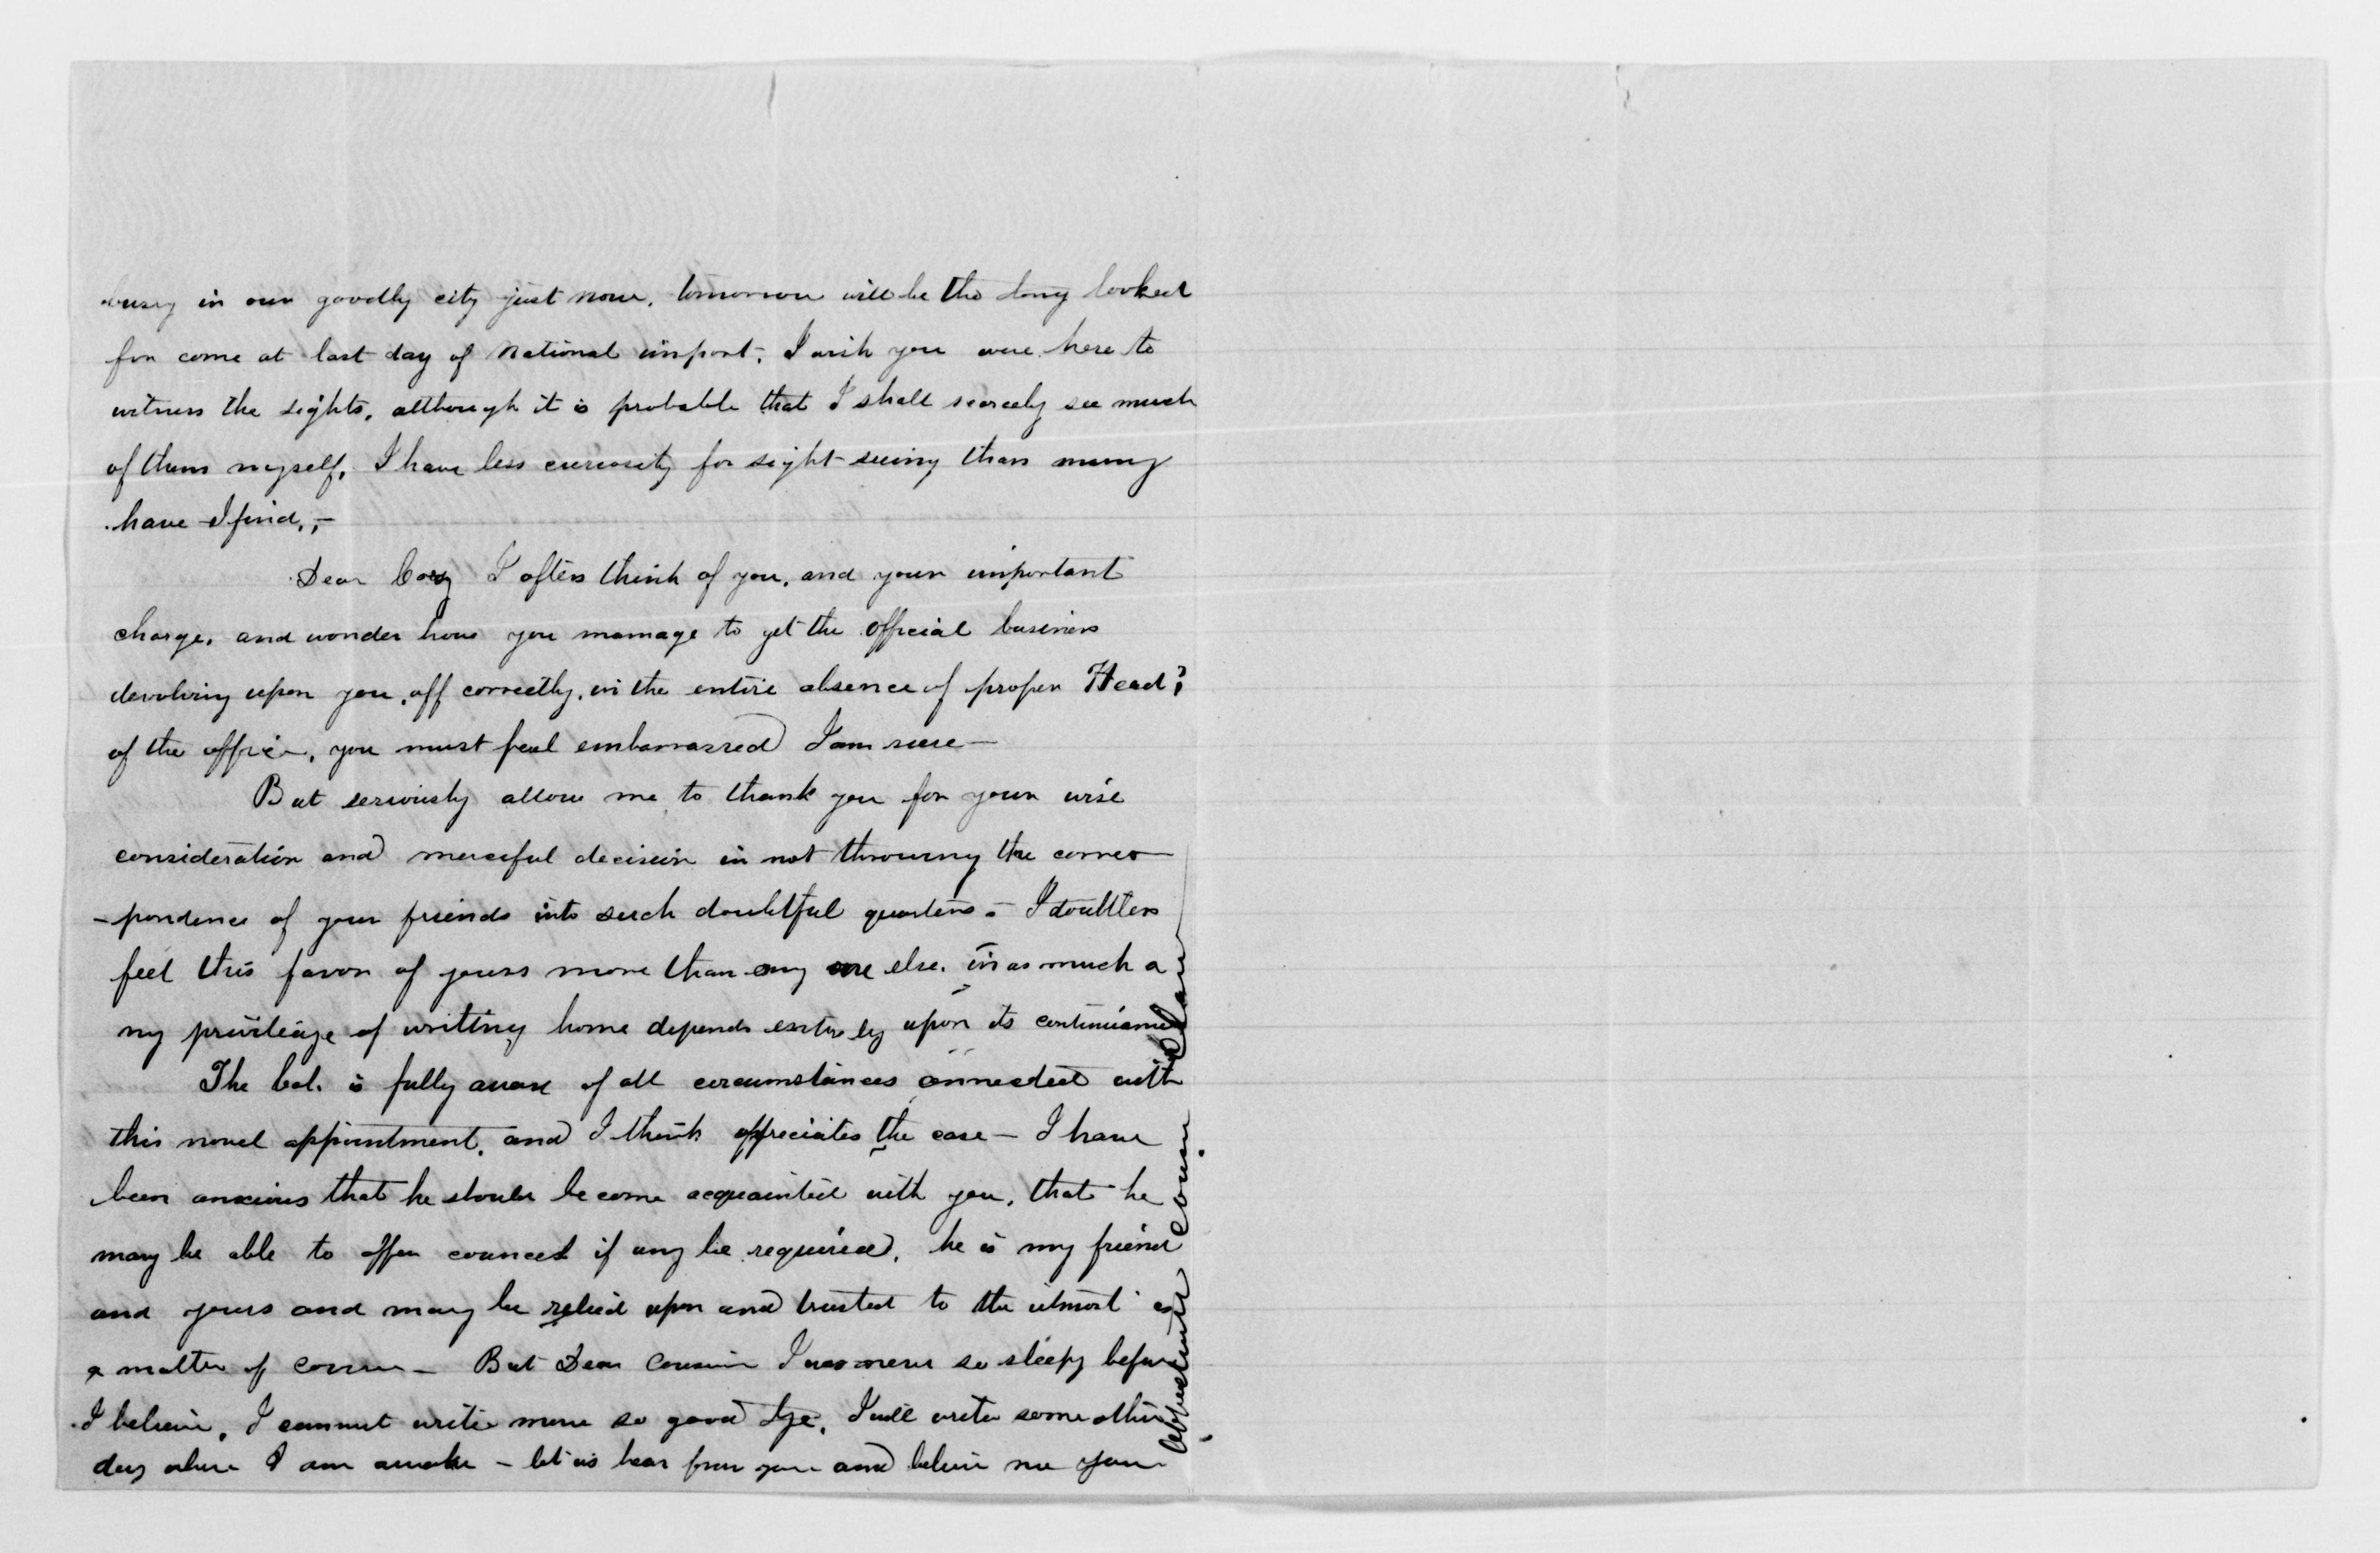 busy in our goodly city just now. tomorrow will be the long looked
for come at last day of National import. I wish you were here to
witness the sights, although it is probable that I shall scarcely see much
of them myself. I have less curiosity for sight-seeing than many
have I find.,-
Dear Cozy I often think of you, and your important
charge, and wonder how you manage to get the official business
devolving upon you, off correctly, in the entire absence of proper Head?
of the office, you must feel embarrassed I am sure-
But seriously allow me to thank you for your wise
consideration and merciful decision in not throwing the corres-
-pondence of your friends into such doubtful quarters - I doubtless
feel this favor of yours more than any one else. in as much as
my privileige of writing home depends entirely upon its continuance
The Col. is fully aware of all circumstances connected with
this novel appointment. and I think appreciates the case - I have
been anxious that he should become acquainted with you, that he
may be able to offer councel if any be required, he is my friend
and yours and may be relied upon and trusted to the utmost as
a matter of course - But Dear Cousin I was never so sleepy before
I believe, I cannot write more so good bye, I will write some other
day when I am awake - let us hear from you and believe me your
Affectionate cousin Clara